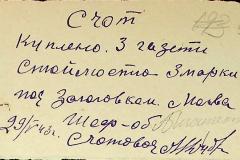 Счот
Куплено 3 газети
Стоимостю 3 марки
под Заголовкам. Молва
29/V 43г.
Счетовод